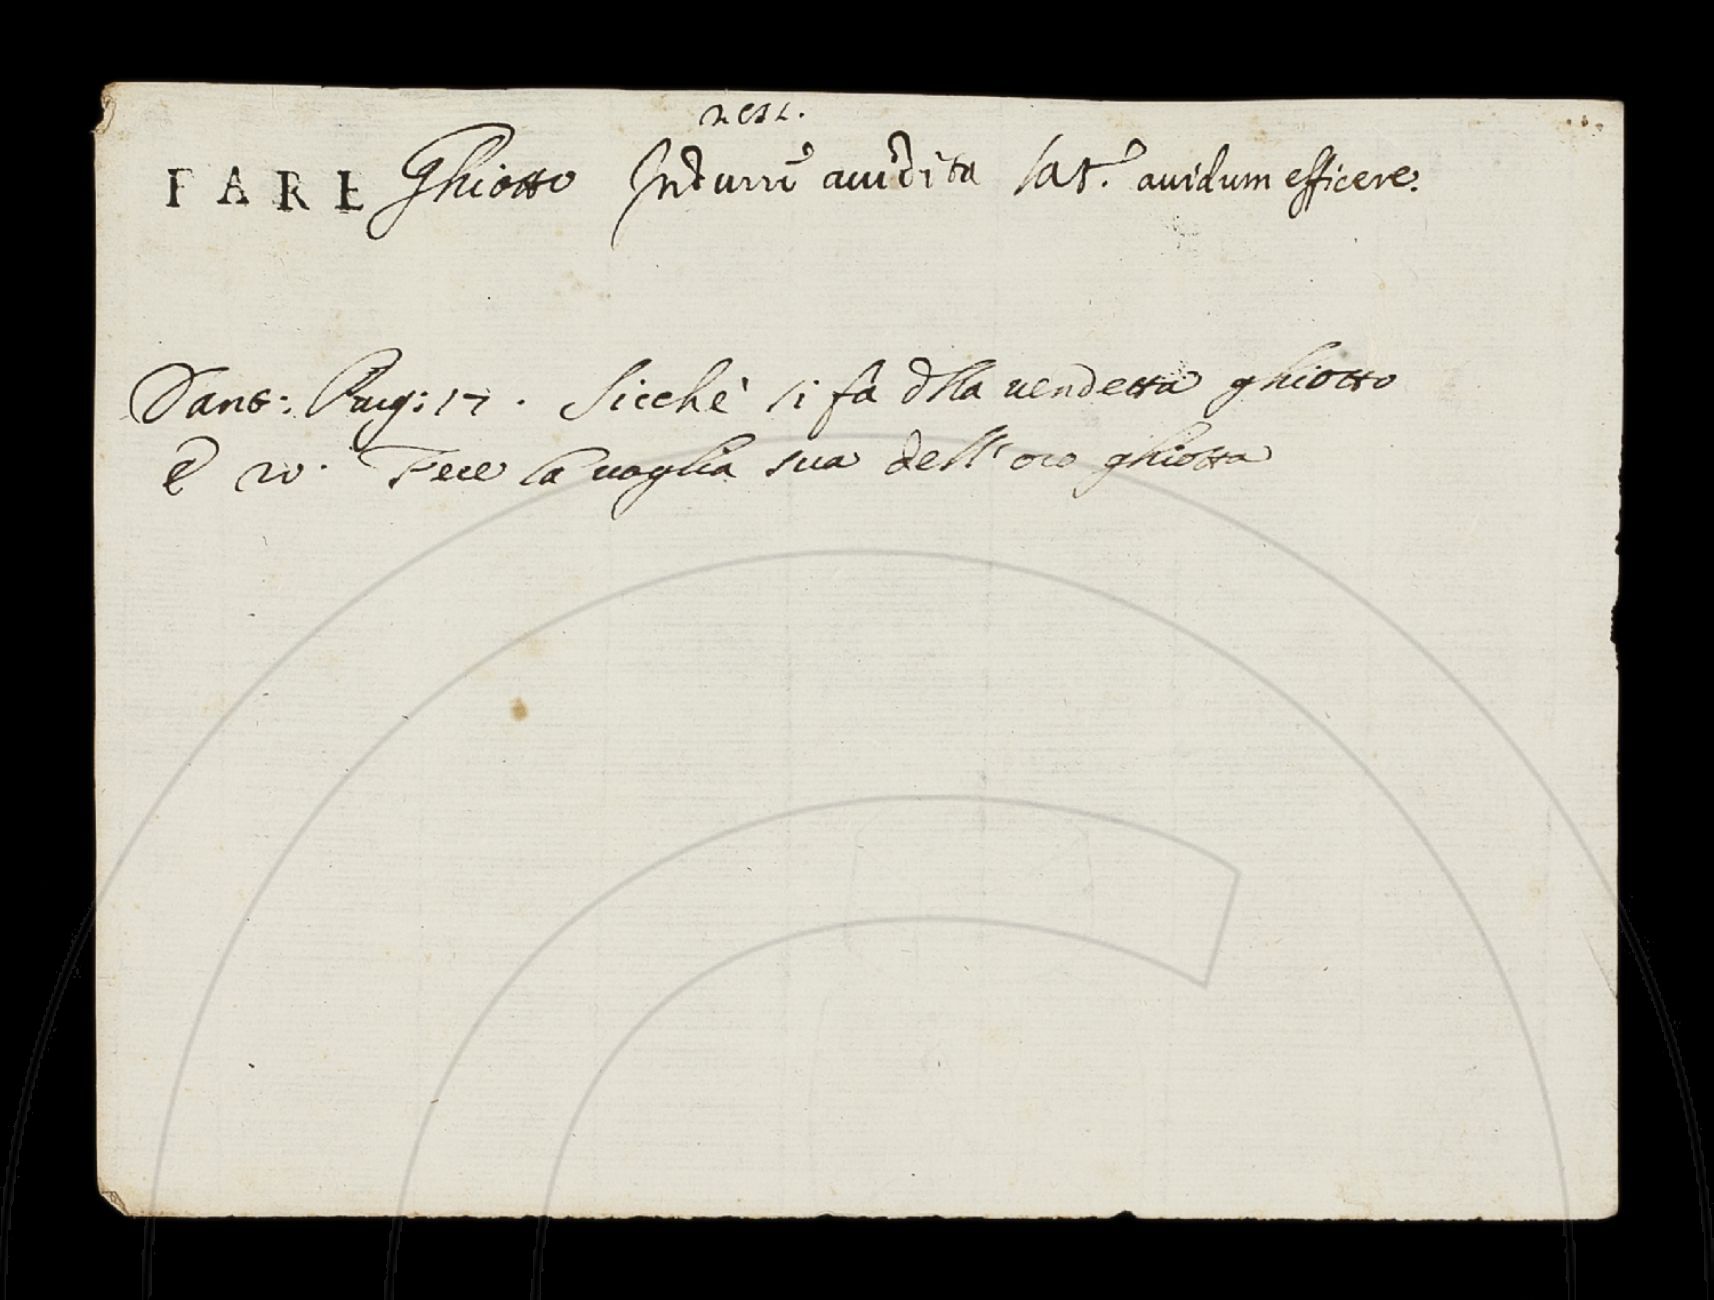 nell.
FARE Ghiotto Indurre auidita lat.o auidum efficere.
Dant: Purg: 17. Sicchè si fa dlla uendetta ghiotto
E 20. Fece la uoglia sua dell'oro ghiotta